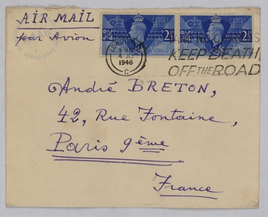 AIR MAIL
par Avion
1946
KEEP DEATH
OFF THE ROAD
André BRETON,
42, Rue Fontaine,
Paris 9ème
France